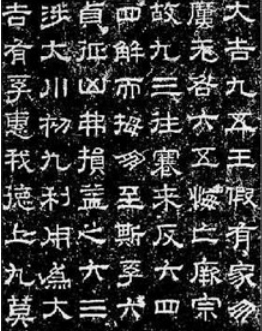 大吉九五王假有家勿
厲无咎六五悔亡厥宗
故九三往蹇來反六四
四解而拇朋至斯孚六
貞征凶弗損益之六三
涉大川初九利用為大
吉有孚惠我德上九莫